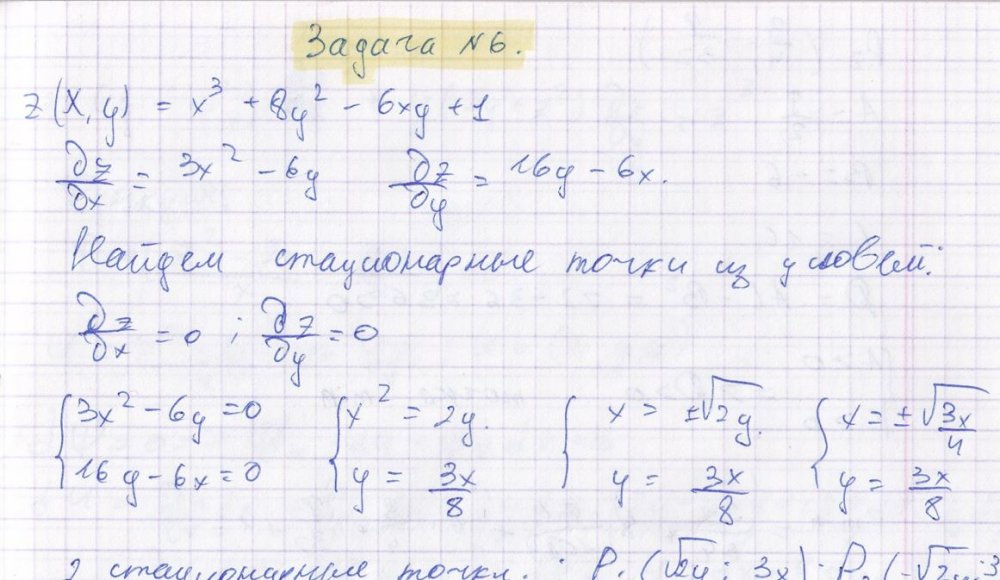 Задача №6.
z(x,y) = x³ + 8y² - 6xy + 1
∂z/∂x = 3x² - 6y ∂z/∂y = 16y - 6x.
Найдем стационарные точки из условий:
∂z/∂x = 0 ; ∂z/∂y = 0
{3x² - 6y = 0 {x² = 2y. {x = ±√2y. {x = ±√3x/4
{16y - 6x = 0 {y = 3x/8 {y = 3x/8 {y = 3x/8
2 стационарные точки.